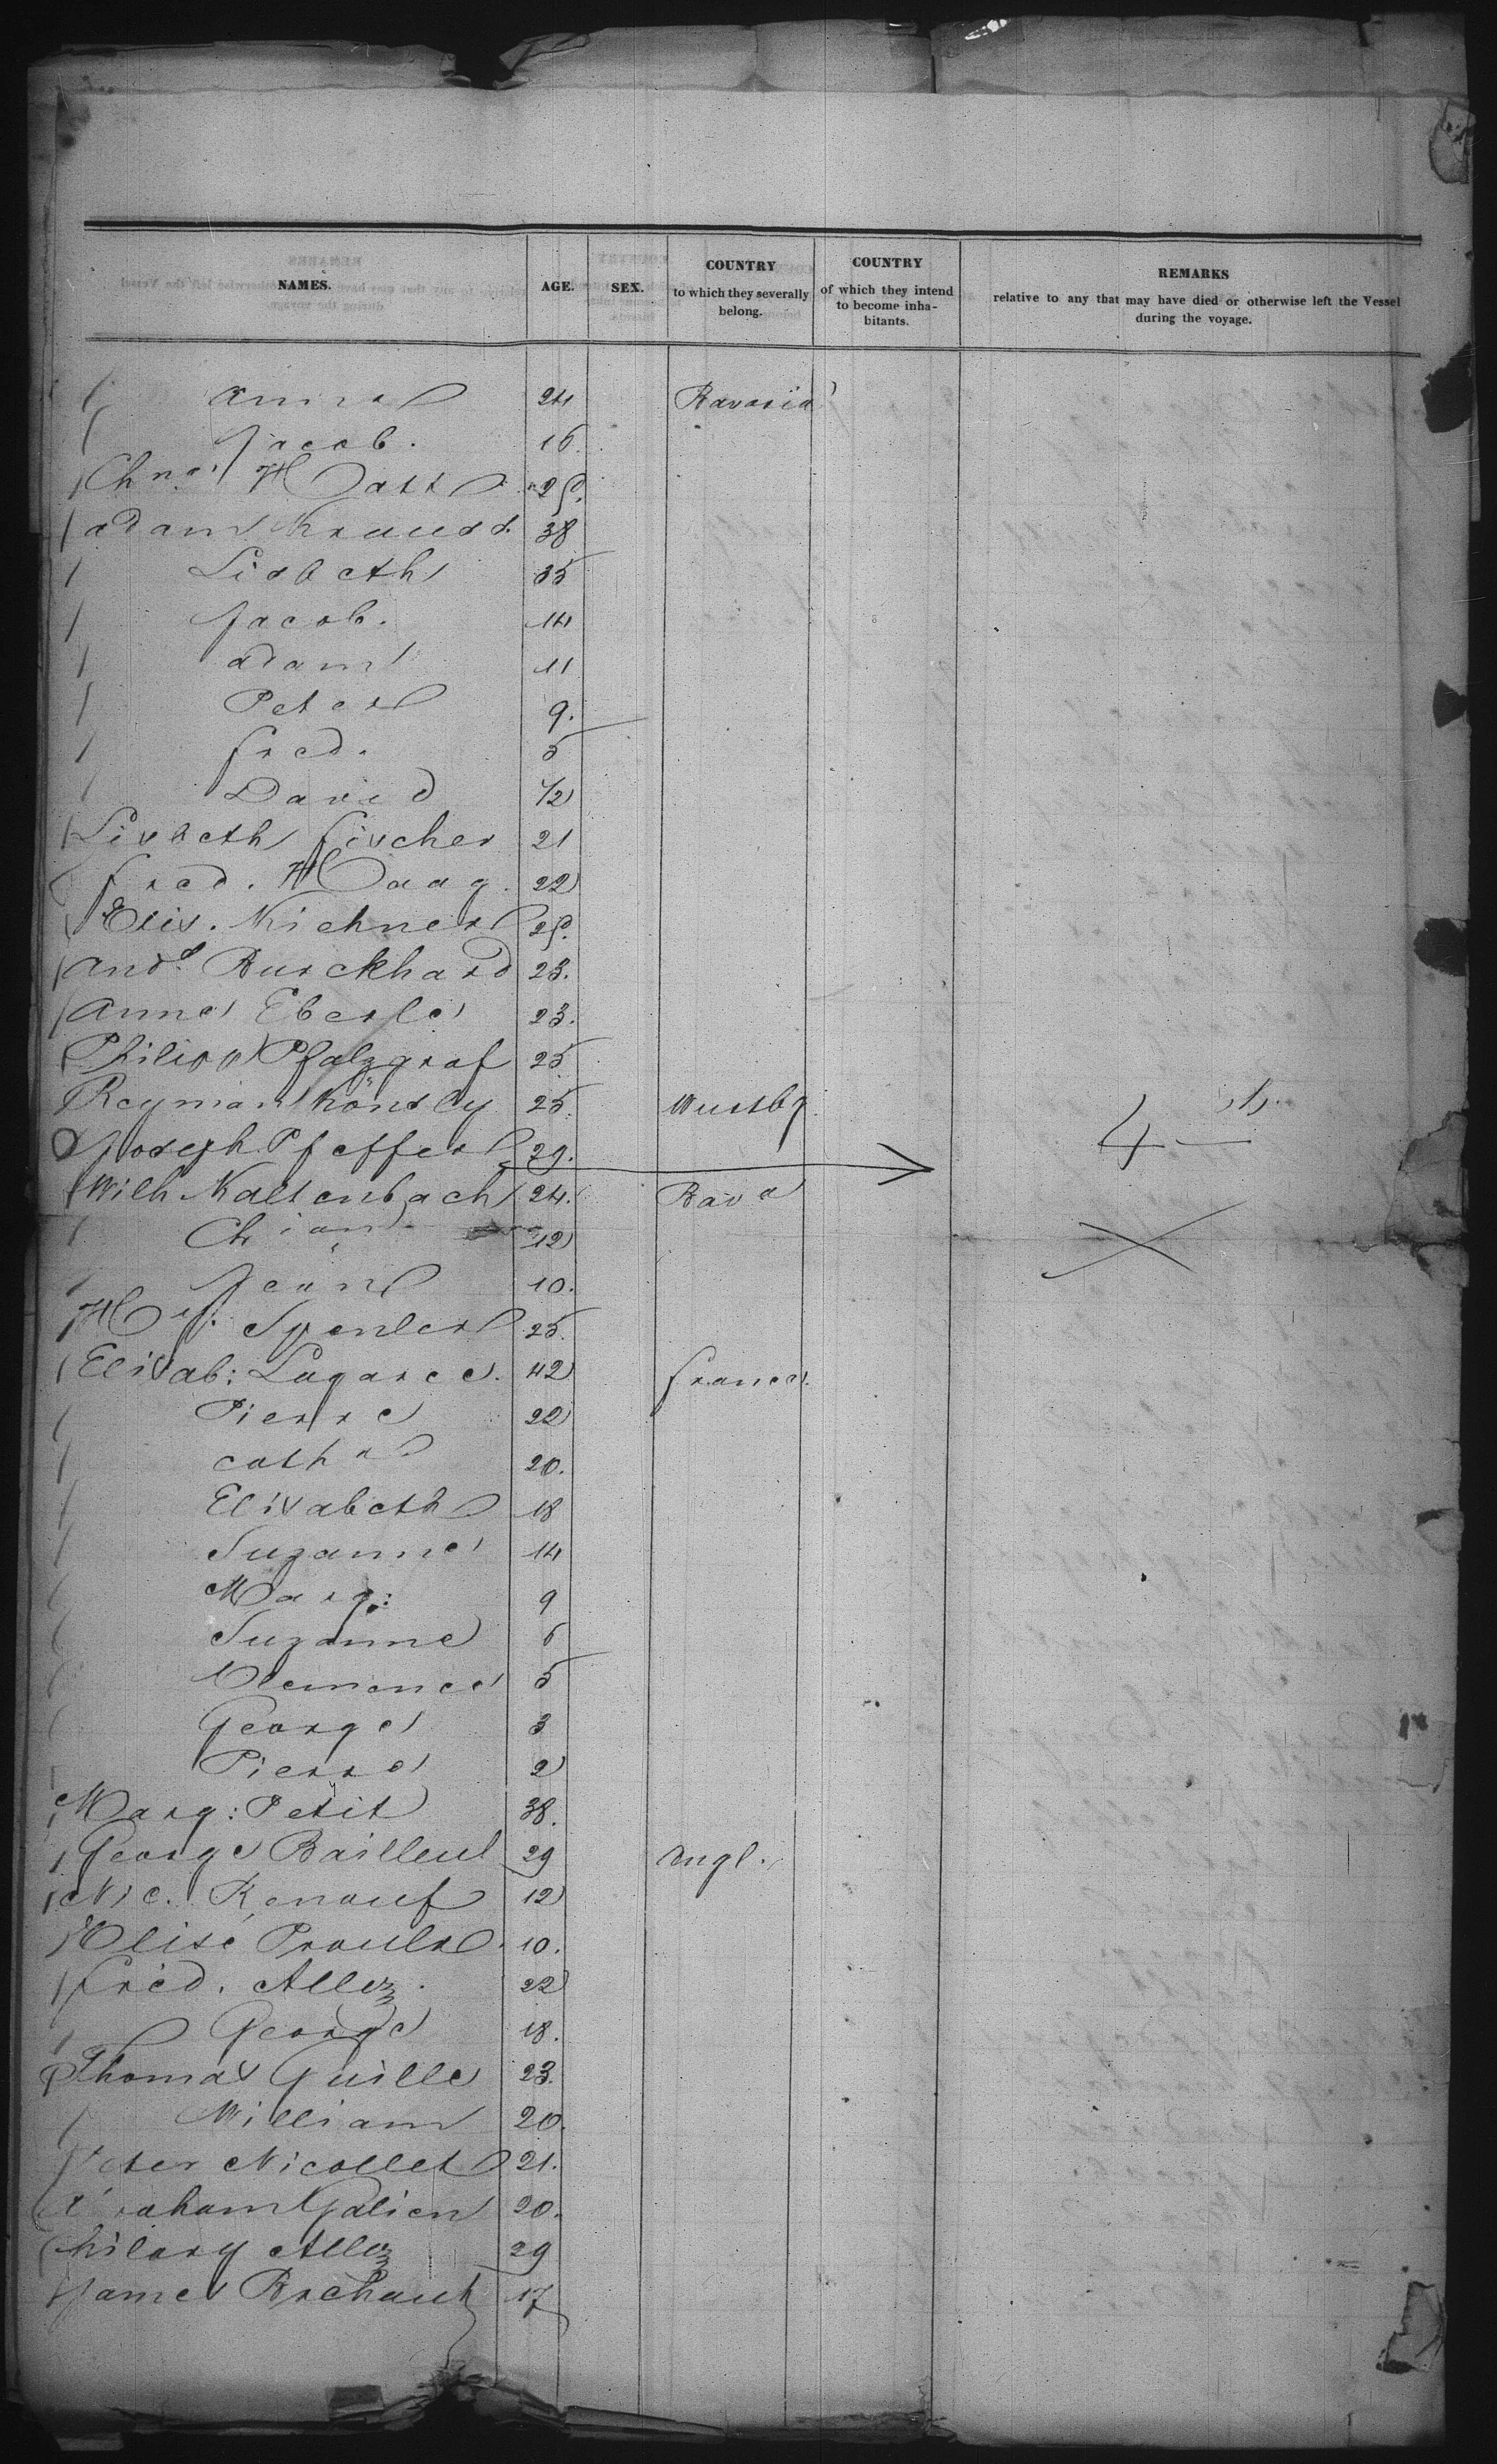 NAMES. AGE. SEX. COUNTRY to which they severally belong. COUNTRY of which they intend to become inhabitants. REMARKS relative to any that may have died or otherwise left the Vessel during the voyage.
24 Bavaria
Jacob. 16.
25.
Adam Krauss. 38
Lisbeth 35
Jacob. 14
Adam 11
Peter 9.
Fred. 5
David 1/2
Lisbeth Fischer 21
Fred. Haag. 22
Elis. Kichner 25.
And. Burckhard 23.
Anne Eberle 23.
Philipp Pfalzgraf 25
25. Wurtbg.
Joseph Pfeffer 29.
Wilh Kaltenbach 24. Bava
Chian 12
Jean 10.
Spenler 25.
Elisab: Lagarce. 42 France.
Pierre 22
Catha 20.
Elisabeth 18
Suzanne 14
Marg: 9
Suzanne 6
Clemence 5
George 3
Pierre 2
Marg: Petit 38.
George Bailleul 29 Angl.
Nic. Renouf 12
Elise 10.
Fréd. Allez. 22
George 18.
Thomas Guille 23.
William 20.
Peter Nicollet 21.
Abraham Galien 20.
Hilary Allez 29
James 17